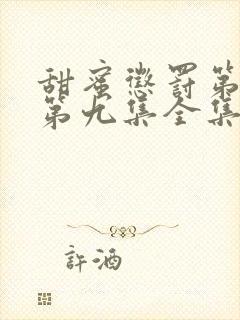 甜蜜懲罰第
第九集全集
許酒